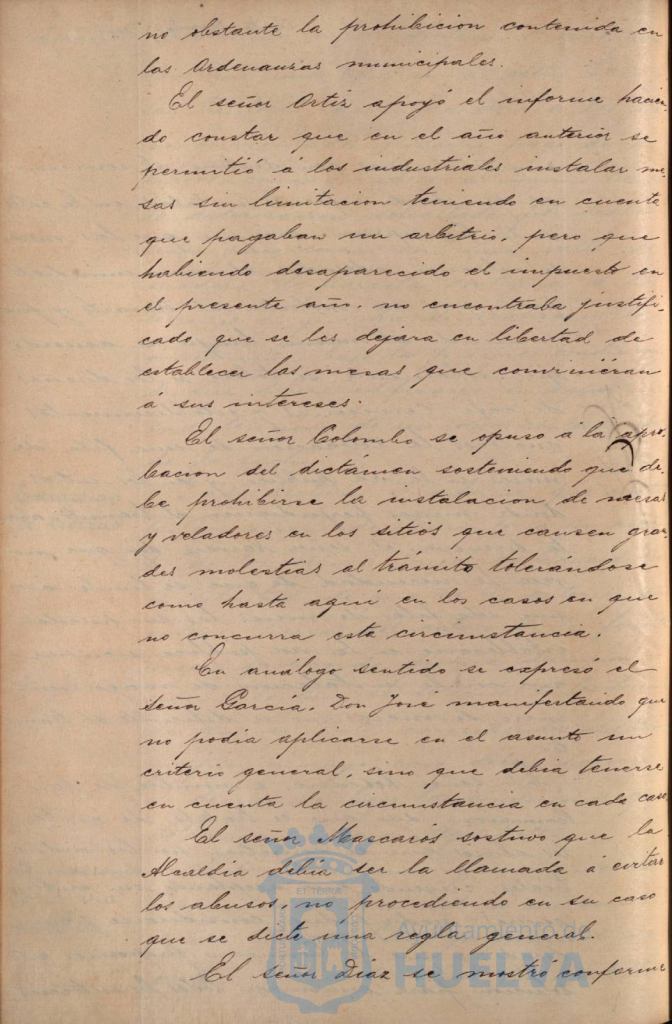 no obstante la prohibicion contenida en
las Ordenanzas municipales.
El señor Ortiz apoyó el informe hacien-
do constar que en el año anterior se
permitió á los industriales instalar me-
sas sin limitacion teniendo en cuenta
que pagaban un arbitrio, pero que
habiendo desaparecido el impuesto en
el presente año, no encontraba justifi-
cado que se les dejara en libertad de
establecer las mesas que convinieran
á sus intereses.
El señor Colombo se opuso á la apro-
bacion del dictámen sosteniendo que de-
be prohibirse la instalacion de mesas
y veladores en los sitios que causen gran-
des molestias al tránsito tolerándose
como hasta aquí en los casos en que
no concurra esta circunstancia.
En análogo sentido se expresó el
señor García, Don José manifestando que
no podia aplicarse en el asunto un
criterio general, sino que debia tenerse
en cuenta la circunstancia en cada caso
El señor Mascarós sostuvo que la
Alcaldía debia ser la llamada á evitar
los abusos, no procediendo en su caso
que se dicte una regla general.
El señor Díaz se mostró conforme
Ayuntamiento de
HUELVA